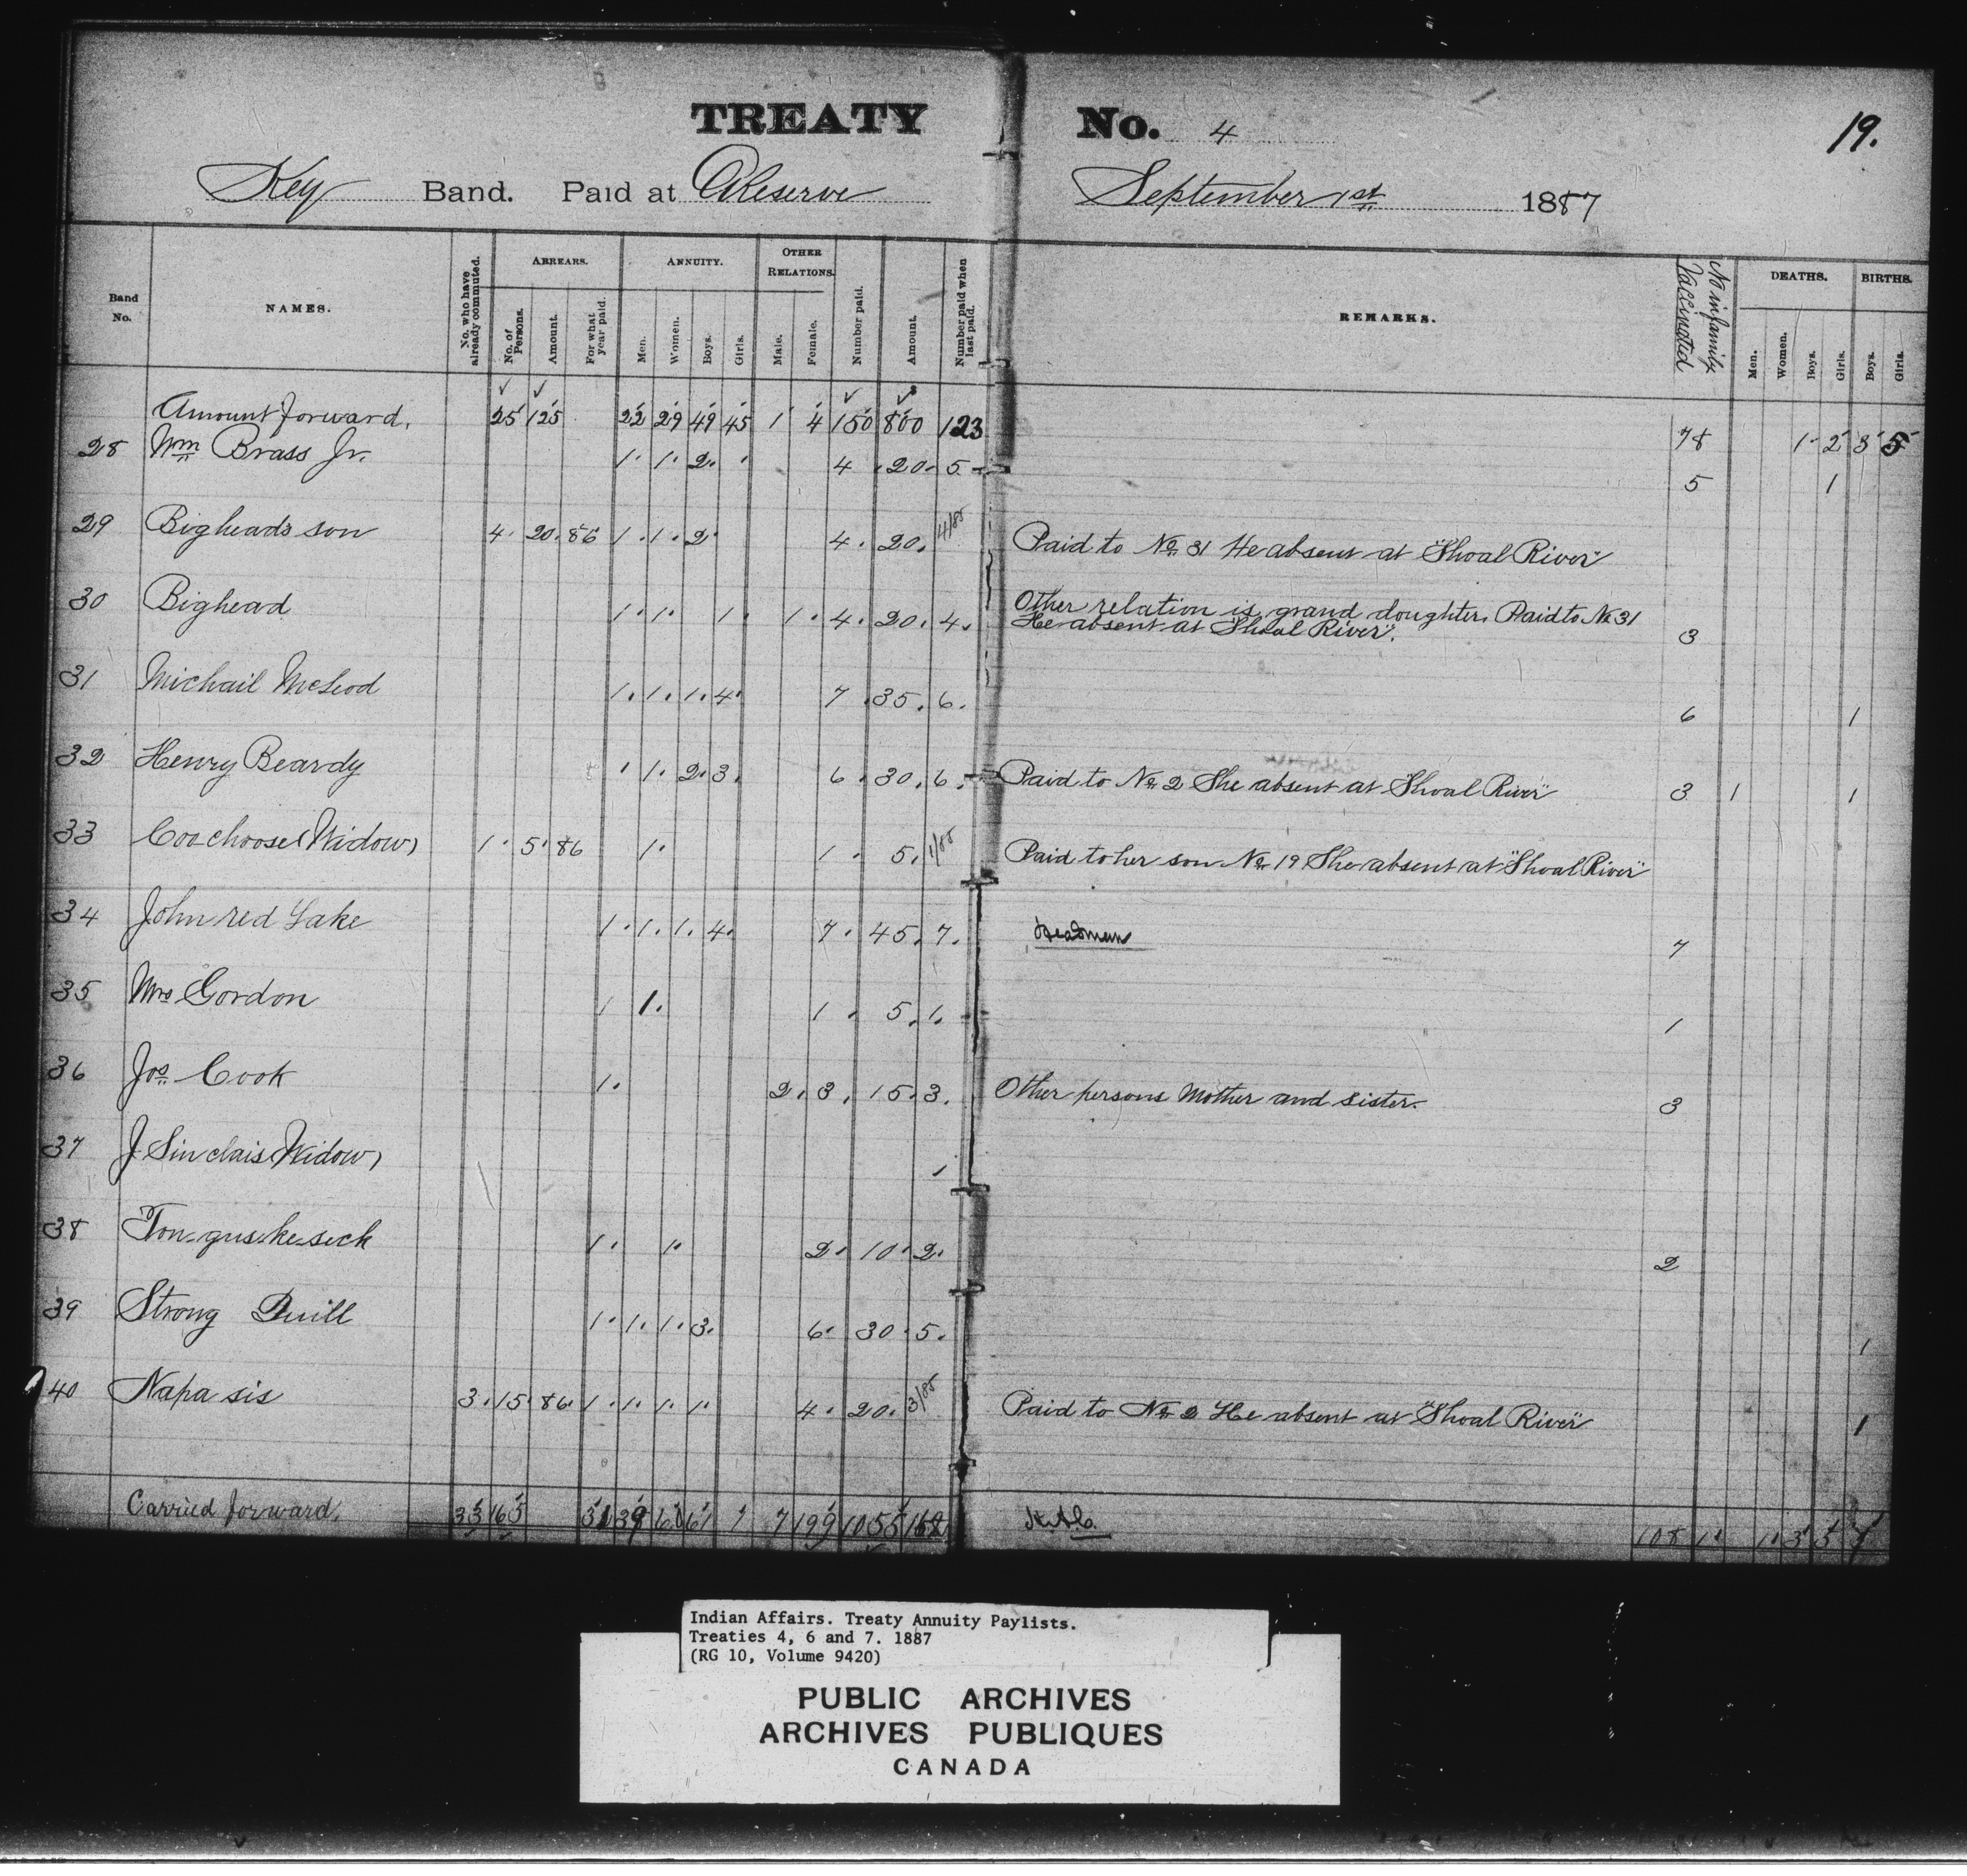 TREATY No. 4
19.
Key Band. Paid at Reserve September 1st 1887
Band No. NAMES. No. who have already commuted. ARREARS. No. of Persons. Amount. For what year paid. ANNUITY. Men. Women. Boys. Girls. OTHER RELATIONS. Male. Female. Number paid. Amount. Number paid when last paid. REMARKS. No in family Vaccinated DEATHS. Men. Women. Boys. Girls. BIRTHS. Boys. Girls.
Amount forward. 25 125 22 29 49 45 1 4 150 800 123 78 1 2 3 5
28 Wm Brass Jr. 1 1 2 4 20 5 5 1
29 Bighead's son 4 20 86 1 1 2 4 20 4/85 Paid to No 31 He absent at "Shoal River"
30 Bighead 1 1 1 1 4 20 4 Other relation is grand doughter. Paid to No 31
He absent at "Shoal River". 3
31 Michail McLeod 1 1 1 4 7 35 6 6 1
32 Henry Beardy 1 2 3 6 30 6 Paid to No 2 She absent at "Shoal River" 3 1 1
33 Coochoose (Widow) 1 5 86 1 1 5 1/85 Paid to her son No 19 She absent at "Shoal River"
34 John red Lake 1 1 1 4 7 45 7 Headman 7
35 Mrs Gordon 1 1 5 1 1
36 Jos Cook 1 2 3 15 3 Other persons Mother and sister. 3
37 J Sinclair (Widow) 1
38 Ton-gus-ke-sick 1 1 2 10 2 2
39 Strong Quill 1 1 1 3 6 30 5 1
40 Napa sis 3 15 86 1 1 1 1 4 20 3/85 Paid to No 2 He absent at "Shoal River" 1
Carried forward. 33 165 31 39 60 61 1 7 199 1055 168 108 1 1 3 5 7
Indian Affairs. Treaty Annuity Paylists.
Treaties 4, 6 and 7. 1887
(RG 10, Volume 9420)
PUBLIC ARCHIVES
ARCHIVES PUBLIQUES
CANADA